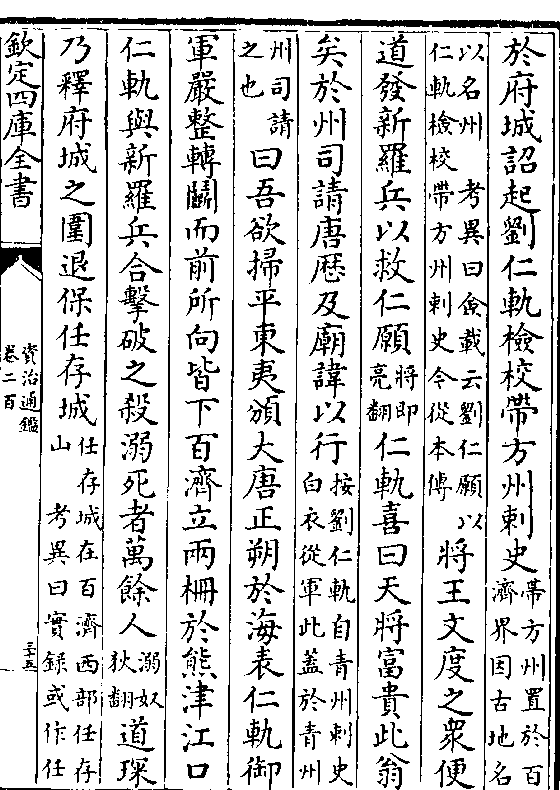 於府城詔起劉仁軌檢校帶方州刺史帶方州置於百濟界因古地名
以名州 考異曰僉載云劉仁願以仁軌檢校帶方州刺史今從本傳將王文度之衆便
道發新羅兵以救仁願將即亮翻仁軌喜曰天將富貴此翁
矣於州司請唐厯及廟諱以行按劉仁軌自青州刺史白衣從軍此蓋於青州
州司請之也曰吾欲掃平東夷頒大唐正朔於海表仁軌御
軍嚴整轉鬭而前所向皆下百濟立兩柵於熊津江口
仁軌與新羅兵合擊破之殺溺死者萬餘人溺奴狄翻道琛
乃釋府城之圍退保任存城任存城在百濟西部任存山 考異曰實錄或作任
欽定四庫全書
資治通鑑
卷二百